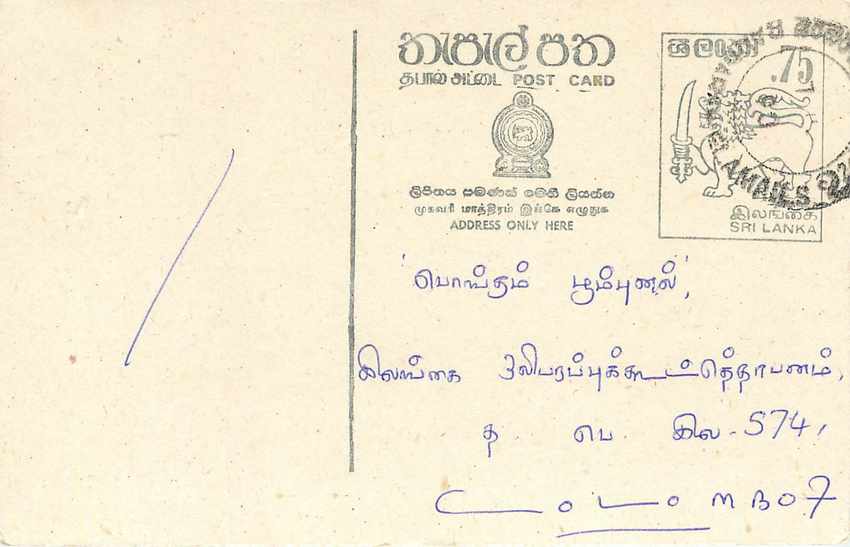 තැපැල් පත
தபால் அட்டை POST CARD
ලිපිනය පමණක් මෙහි ලියන්න
முகவரி மாத்திரம் இங்கே எழுதுக
ADDRESS ONLY HERE
ශ්‍රී ලංකා
.75
இலங்கை
SRI LANKA
'பொங்கும் பூம்புனல்',
இலங்கை ஒலிபரப்புக்கூட்டுத்தாபனம்,
த. பெ. இல - 574,
COLOMBO 7